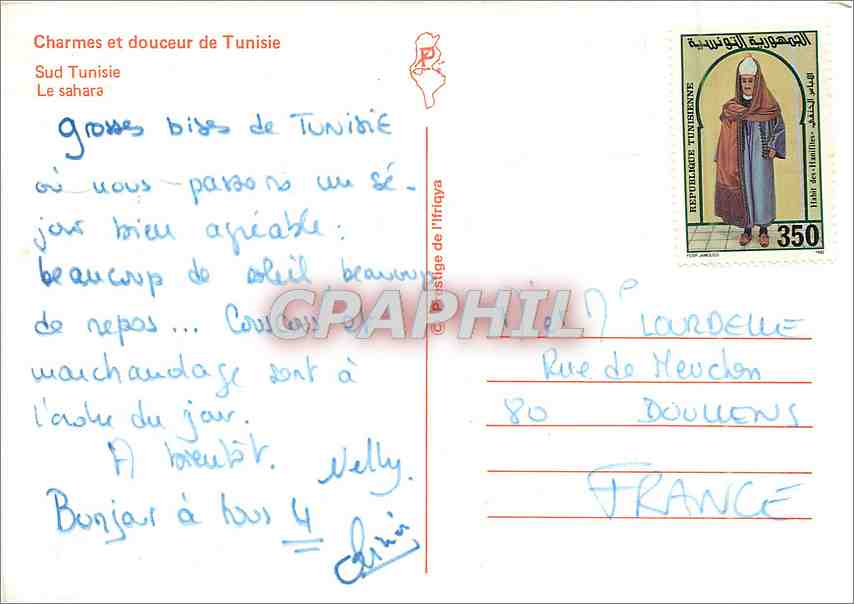 Charmes et douceur de Tunisie
Sud Tunisie
Le sahara
P
grosses bises de TUNISIE
où nous passons un sé-
jour bien agréable :
beaucoup de soleil beaucoup
de repos... Couscous et
marchandage sont à
l'ordre du jour.
A bientôt. Nelly.
Bonjour à tous 4
Prestige de l'Ifriqya
CPAPHIL
الجمهورية التونسية
REPUBLIQUE TUNISIENNE
اللباس الحنفي
Habit des «Hanifites»
350
et Mᵉ LOURDELLE
Rue de Menchon
80 DOULLENS
FRANCE